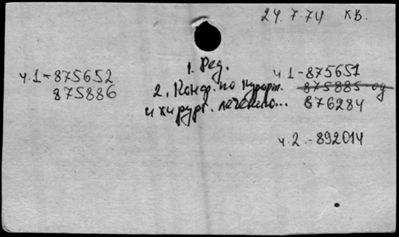 24.7.74 кв.
1. Ред.
ч.1-875652 ч.1-875651
875886 2. Конф. по курорт. 875885 од
и хирург. лечению... 876284
ч.2.-892014